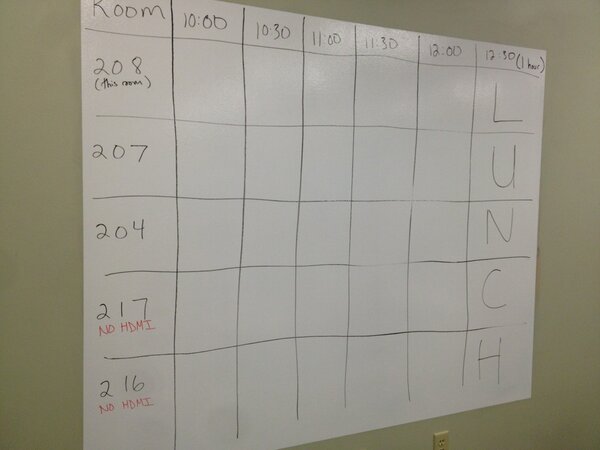 Room 10:00 10:30 11:00 11:30 12:00 12:30 (1 hour)
208 L
(this room)
207 U
204 N
217 C
NO HDMI
216 H
NO HDMI